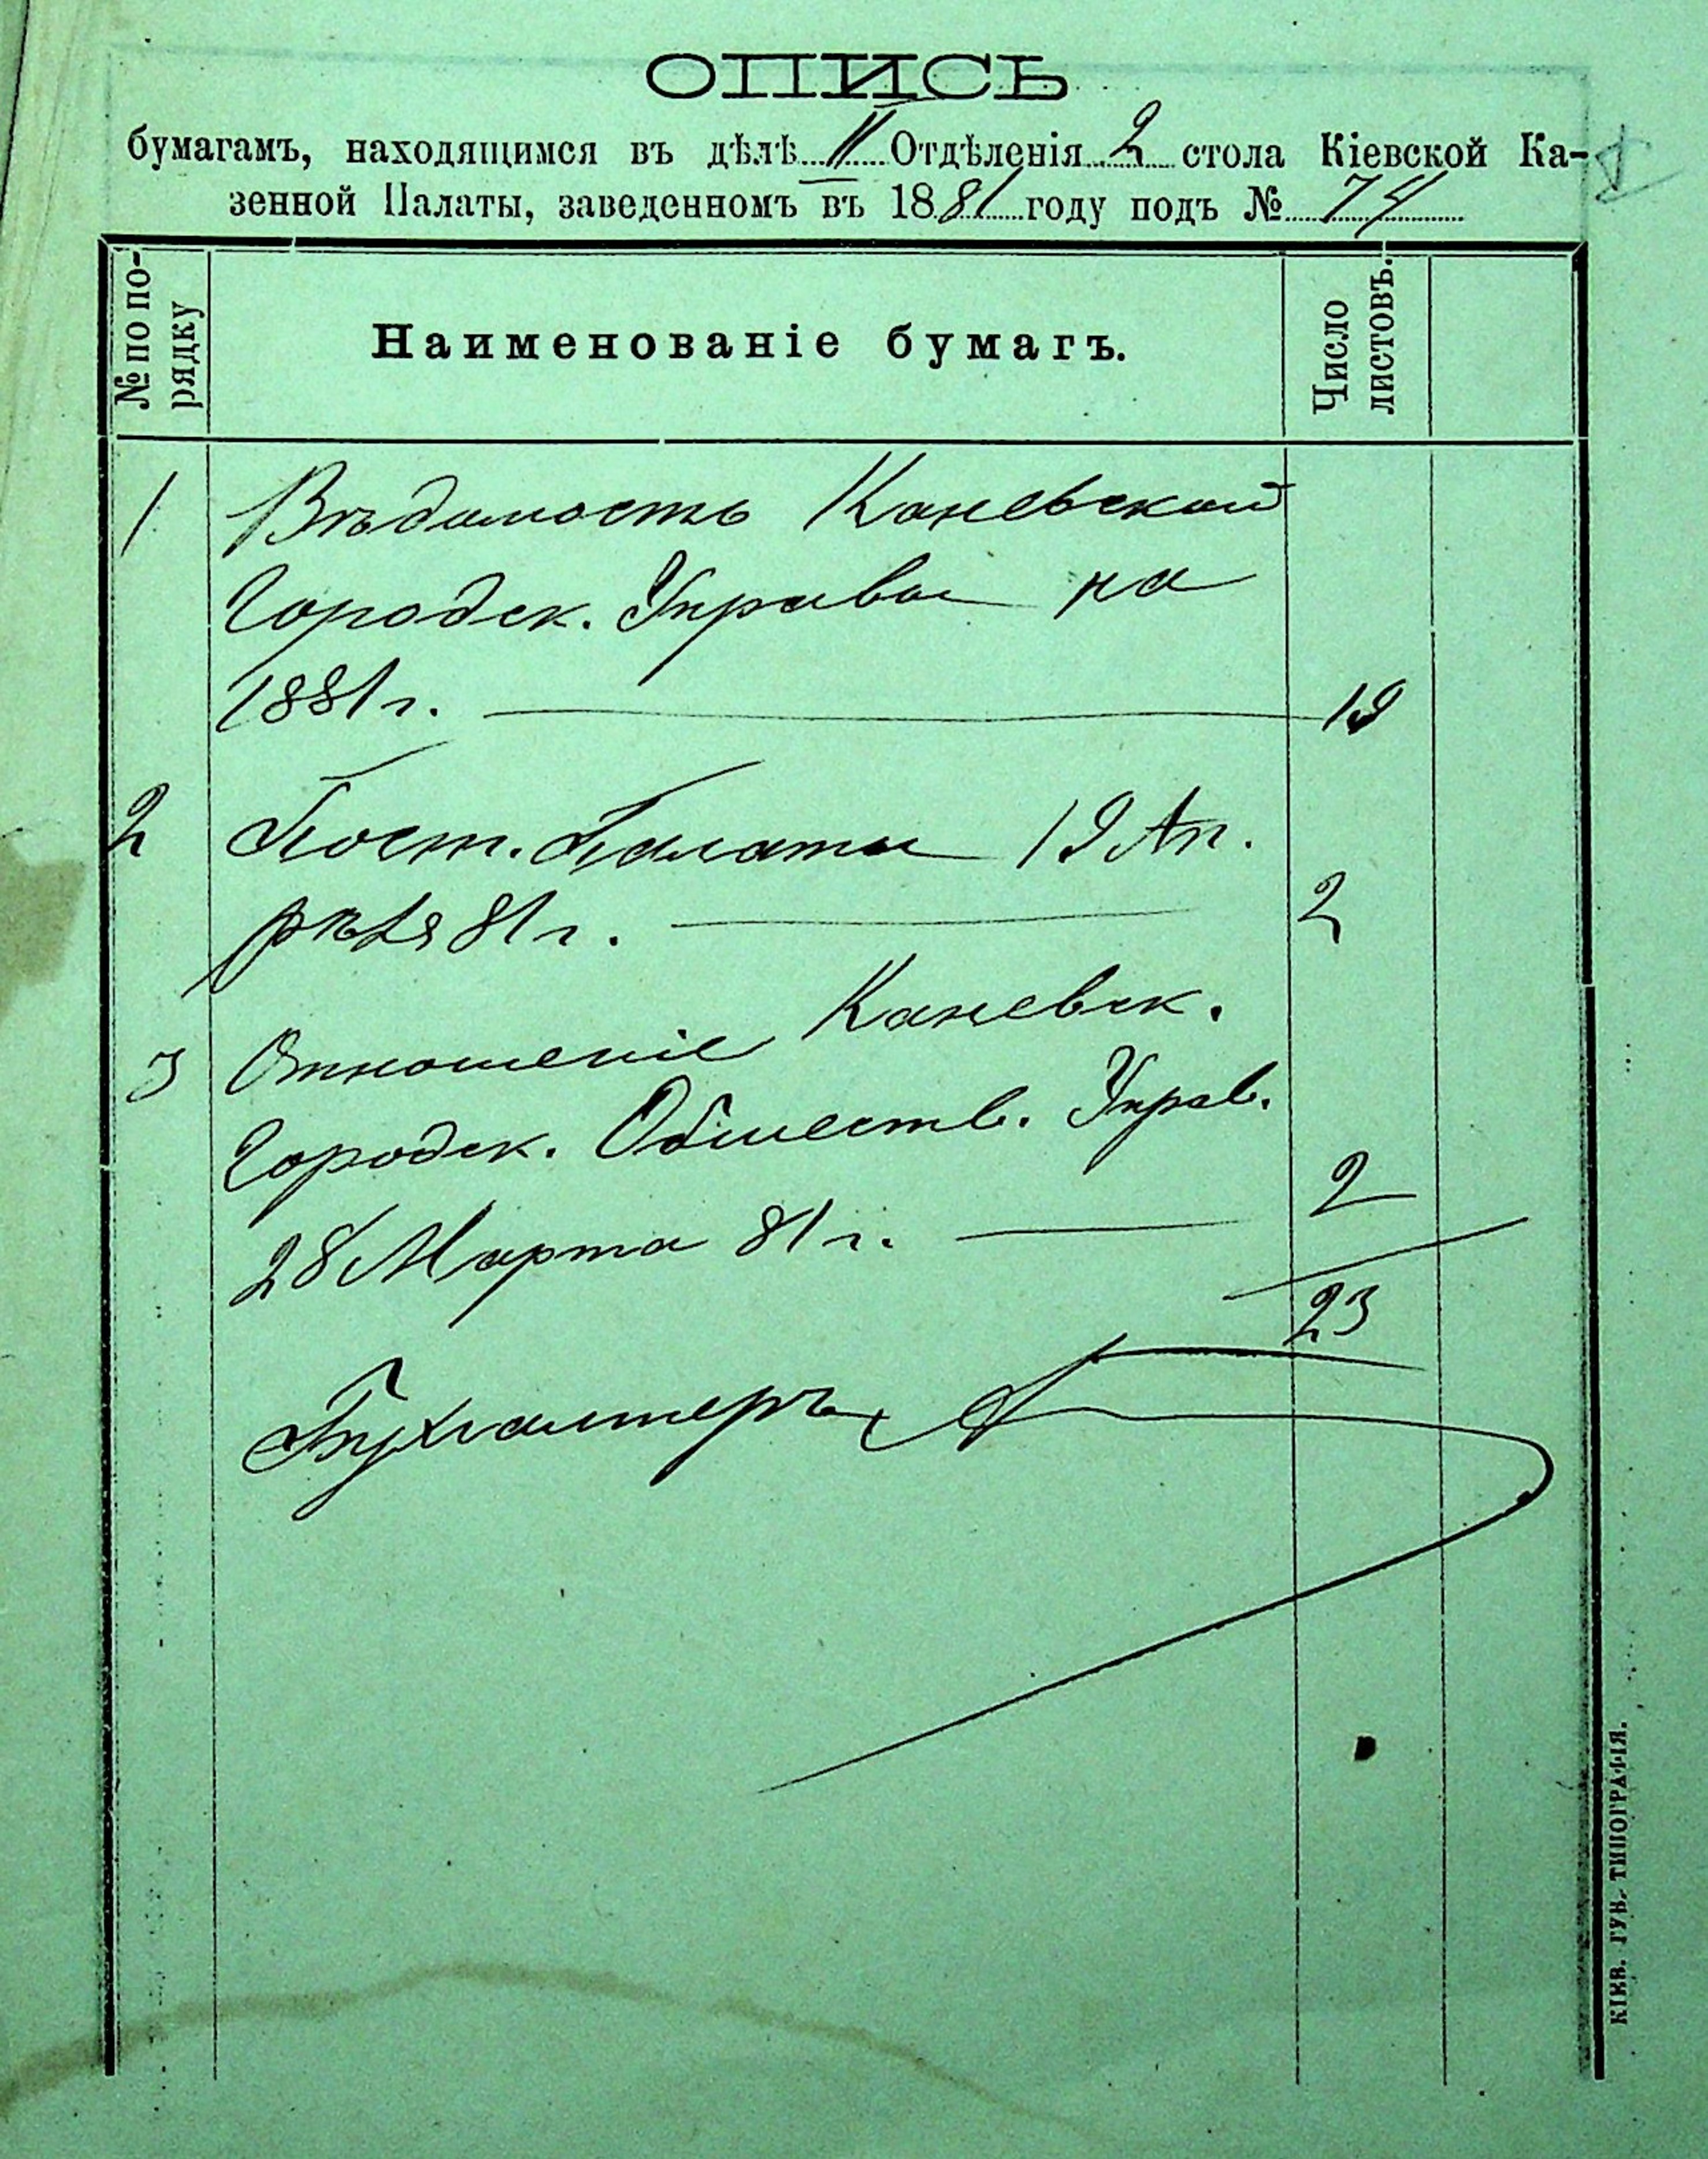 ОПИСЬ
бумагамъ, находящимся въ дѣлѣ II Отдѣленія 2 стола Кіевской Ка-
зенной Палаты, заведенномъ въ 1881 году подъ № 74
№ по по-
рядку
Наименованіе бумагъ.
Число
листовъ.
1 Вѣдомость Каневской
Городск. Управы на
1881 г. 19
2 Пост. Палаты 19 Ап.
рѣля 81 г. 2
3 Отношеніе Каневск.
Городск. Обществ. Управ.
28 Марта 81 г. 2
23
Бухгалтеръ
КІЕВ. ГУБ. ТИПОГРАФІЯ.